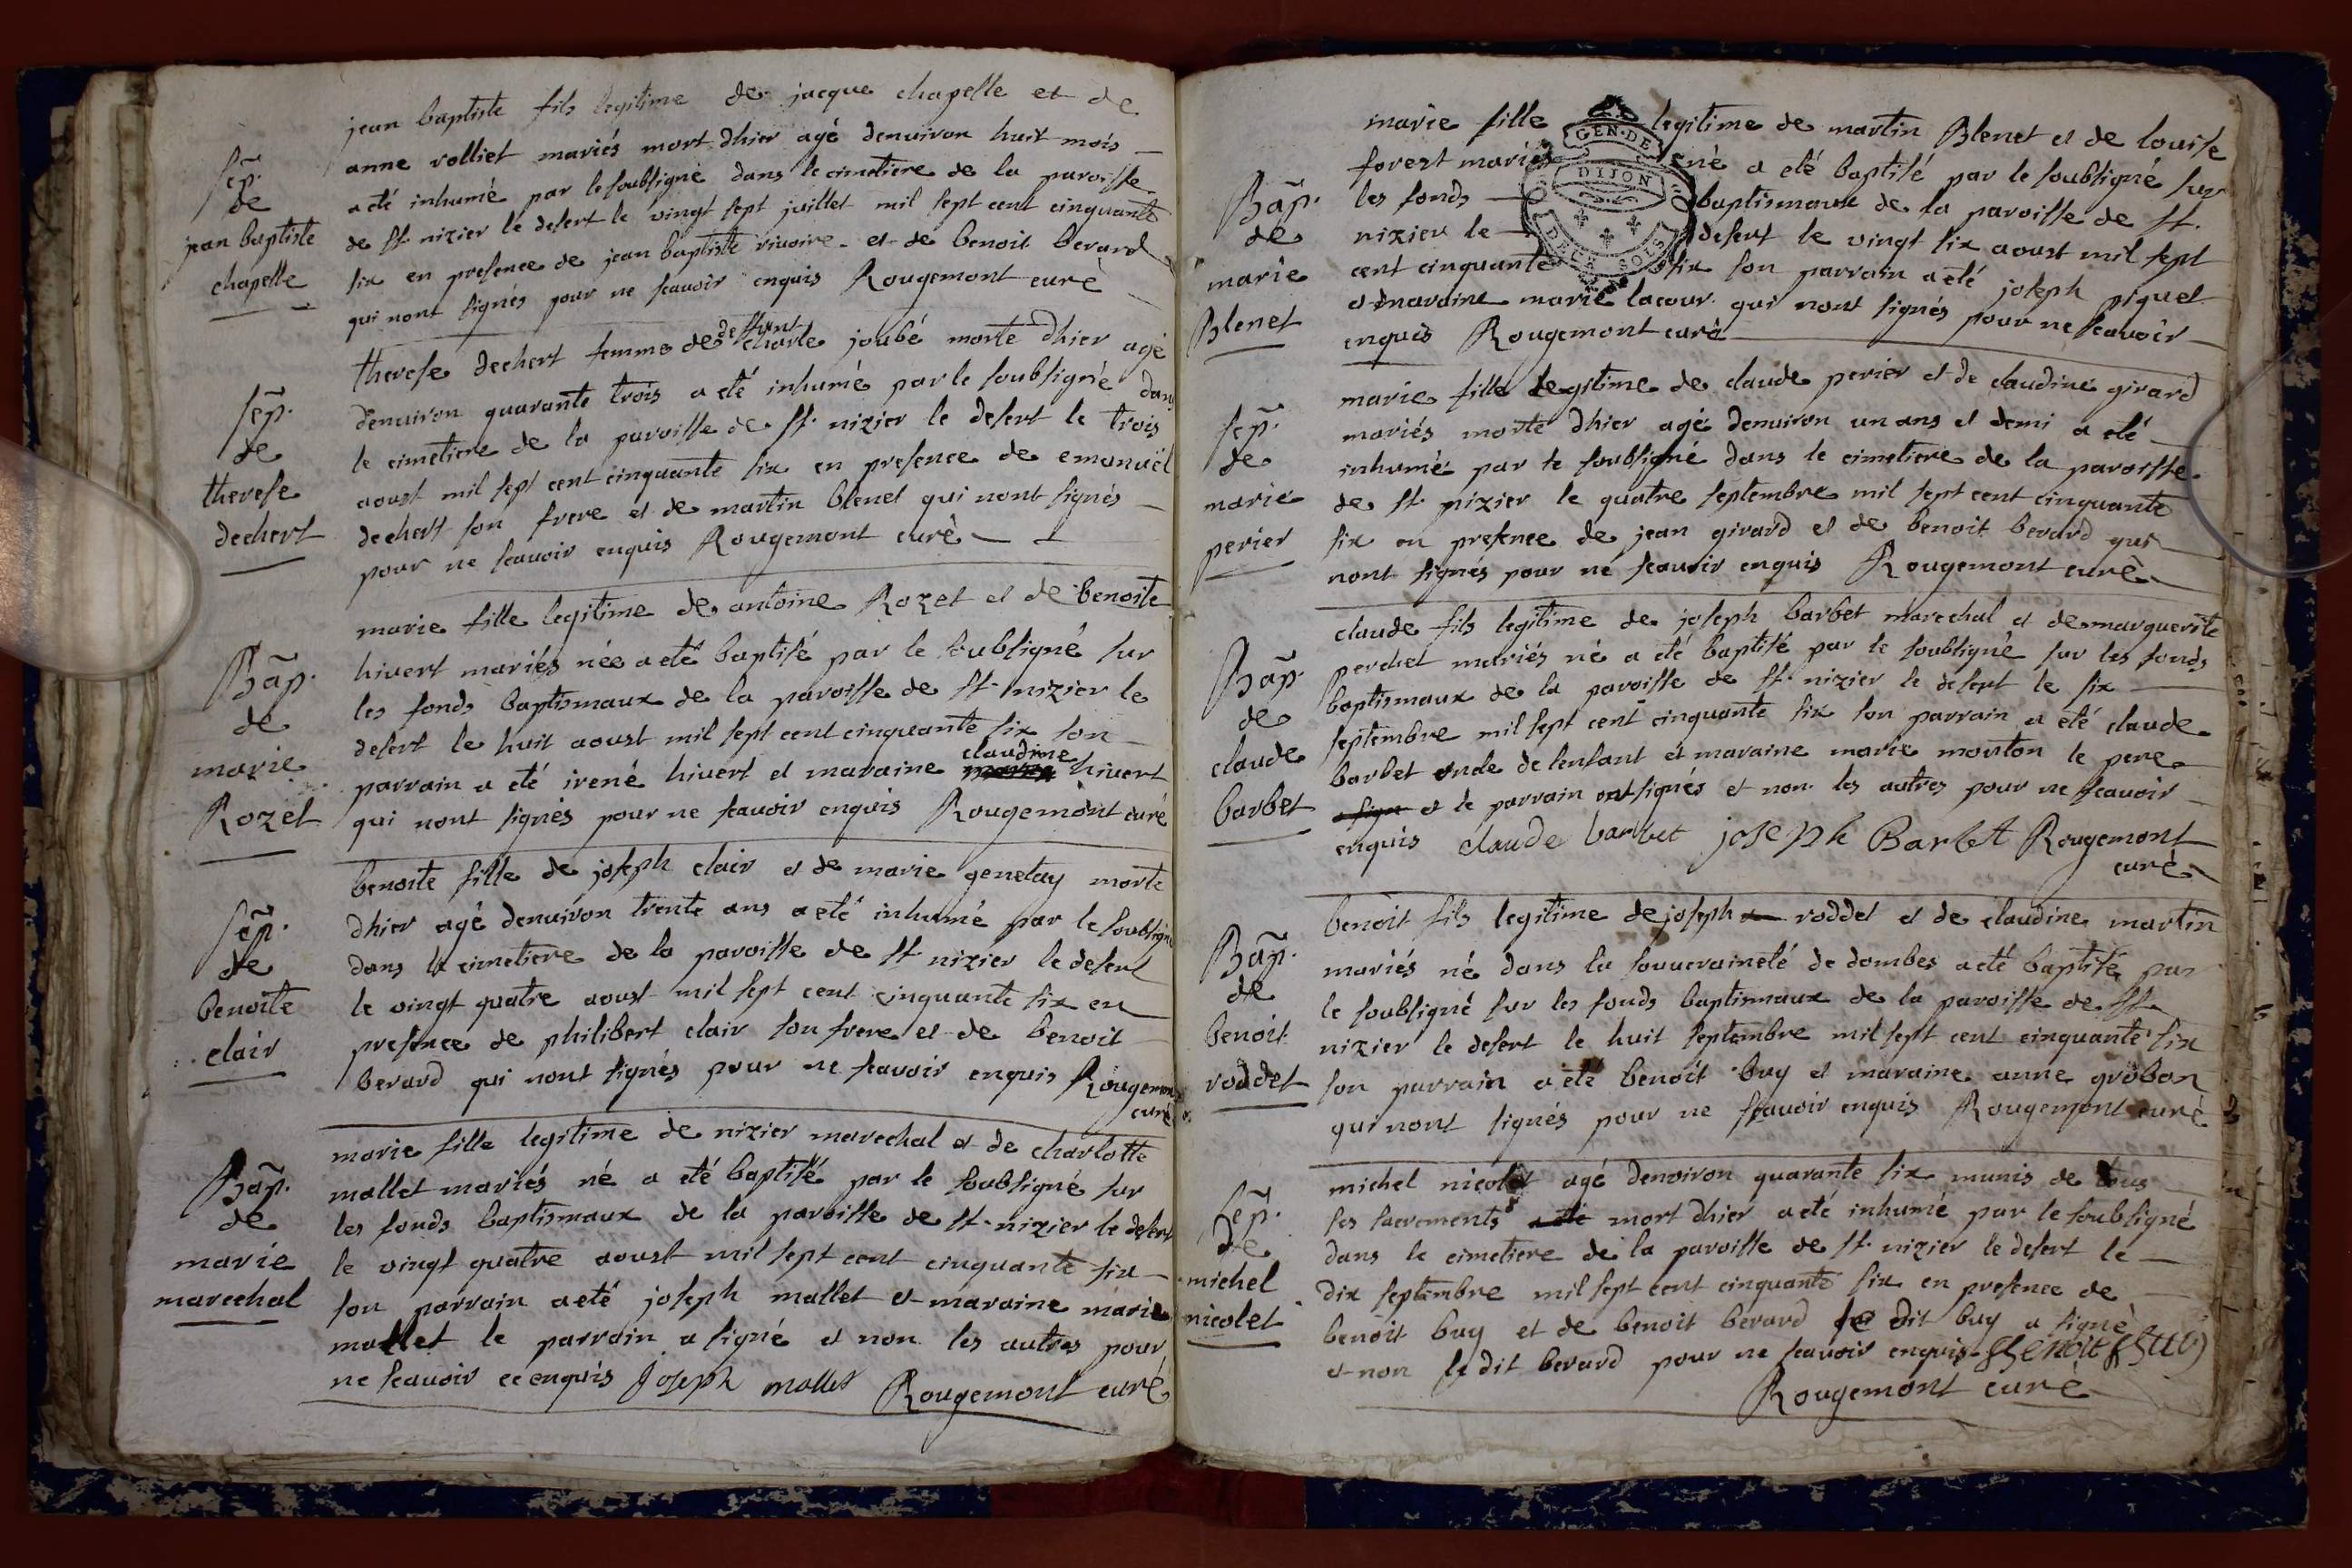 jean baptiste fils legitime de jacque chapelle et de
anne volliet mariés mort dhier agé denuiron huit mois
a eté inhumé par le soubsigné dans le cimetiere de la paroisse
de st nizier le desert le vingt sept juillet mil sept cent cinquante
six en presence de jean baptiste rivoire et de benoit berard
qui nont signés pour ne scauoir enquis Rougemont curé
sep.
de
jean baptiste
chapelle
therese dechert femme de deffunt charle joubé morte dhier agé
denuiron quarante trois a eté inhumé par le soubsigné dans
le cimetiere de la paroisse de st nizier le desert le trois
aoust mil sept cent cinquante six en presence de emanuël
dechert son frere et de martin blenet qui nont signés
pour ne scauoir enquis Rougemont curé
sep.
de
therese
dechert
marie fille legitime de antoine Rozet et de benoite
hivert mariés née a eté baptisé par le soubsigné sur
les fonds baptismaux de la paroisse de st nizier le
desert le huit aoust mil sept cent cinquante six son
parrain a eté irené hivert et maraine claudine hivert
qui nont signés pour ne scauoir enquis Rougemont curé
Bap.
de
marie
Rozet
benoite fille de joseph clair et de marie genetay morte
dhier agé denuiron trente ans a eté inhumé par le soubsigné
dans le cimetiere de la paroisse de st nizier le desert
le vingt quatre aoust mil sept cent cinquante six en
presence de philibert clair son frere et de benoit
berard qui nont signés pour ne scauoir enquis Rougemont
curé
sep.
de
benoite
clair
marie fille legitime de nizier marechal et de charlotte
mallet mariés né a eté baptisé par le soubsigné sur
les fonds baptismaux de la paroisse de st nizier le desert
le vingt quatre aoust mil sept cent cinquante six
son parrain a eté joseph mallet et maraine marie
mallet le parrain a signé et non les autres pour
ne scauoir ce enquis Joseph mallet Rougemont curé
Bap.
de
marie
marechal
marie fille legitime de martin Blenet et de louise
forest mariés né a eté baptisé par le soubsigné sur
les fonds baptismaux de la paroisse de st.
nizier le desert le vingt six aoust mil sept
cent cinquante six son parrain a eté joseph piquet
et maraine marie lacour qui nont signés pour ne scauoir
enquis Rougemont curé
GEN·DE
DIJON
DEUX SOLS
Bap.
de
marie
Blenet
marie fille legitime de claude perier et de claudine girard
mariés morte dhier agé denuiron un ans et demi a eté
inhumé par le soubsigné dans le cimetiere de la paroisse
de st nizier le quatre septembre mil sept cent cinquante
six en presence de jean girard et de benoit berard qui
nont signés pour ne scauoir enquis Rougemont curé
sep.
de
marie
perier
claude fils legitime de joseph barbet marechal et de marguerite
perdiet mariés né a eté baptisé par le soubsigné sur les fonds
baptismaux de la paroisse de st nizier le desert le six
septembre mil sept cent cinquante six son parrain a eté claude
barbet oncle de lenfant et maraine marie monton le pere
a signé et le parrain ont signés et non les autres pour ne scauoir
enquis claude barbet joseph Barbet Rougemont
curé
Bap.
de
claude
barbet
benoit fils legitime de joseph roddet et de claudine martin
mariés né dans la souueraineté de dombes a eté baptisé par
le soubsigné sur les fonds baptismaux de la paroisse de st
nizier le desert le huit septembre mil sept cent cinquante six
son parrain a eté benoit buy et maraine anne grobon
qui nont signés pour ne scauoir enquis Rougemont curé
Bap.
de
benoit
roddet
michel nicolet agé denviron quarante six munis de tous
ses sacrements mort dhier a eté inhumé par le soubsigné
dans le cimetiere de la paroisse de st nizier le desert le
dix septembre mil sept cent cinquante six en presence de
benoit buy et de benoit berard le dit buy a signé
et non le dit berard pour ne scauoir enquis Benoit Buy
Rougemont curé
sep.
de
michel
nicolet